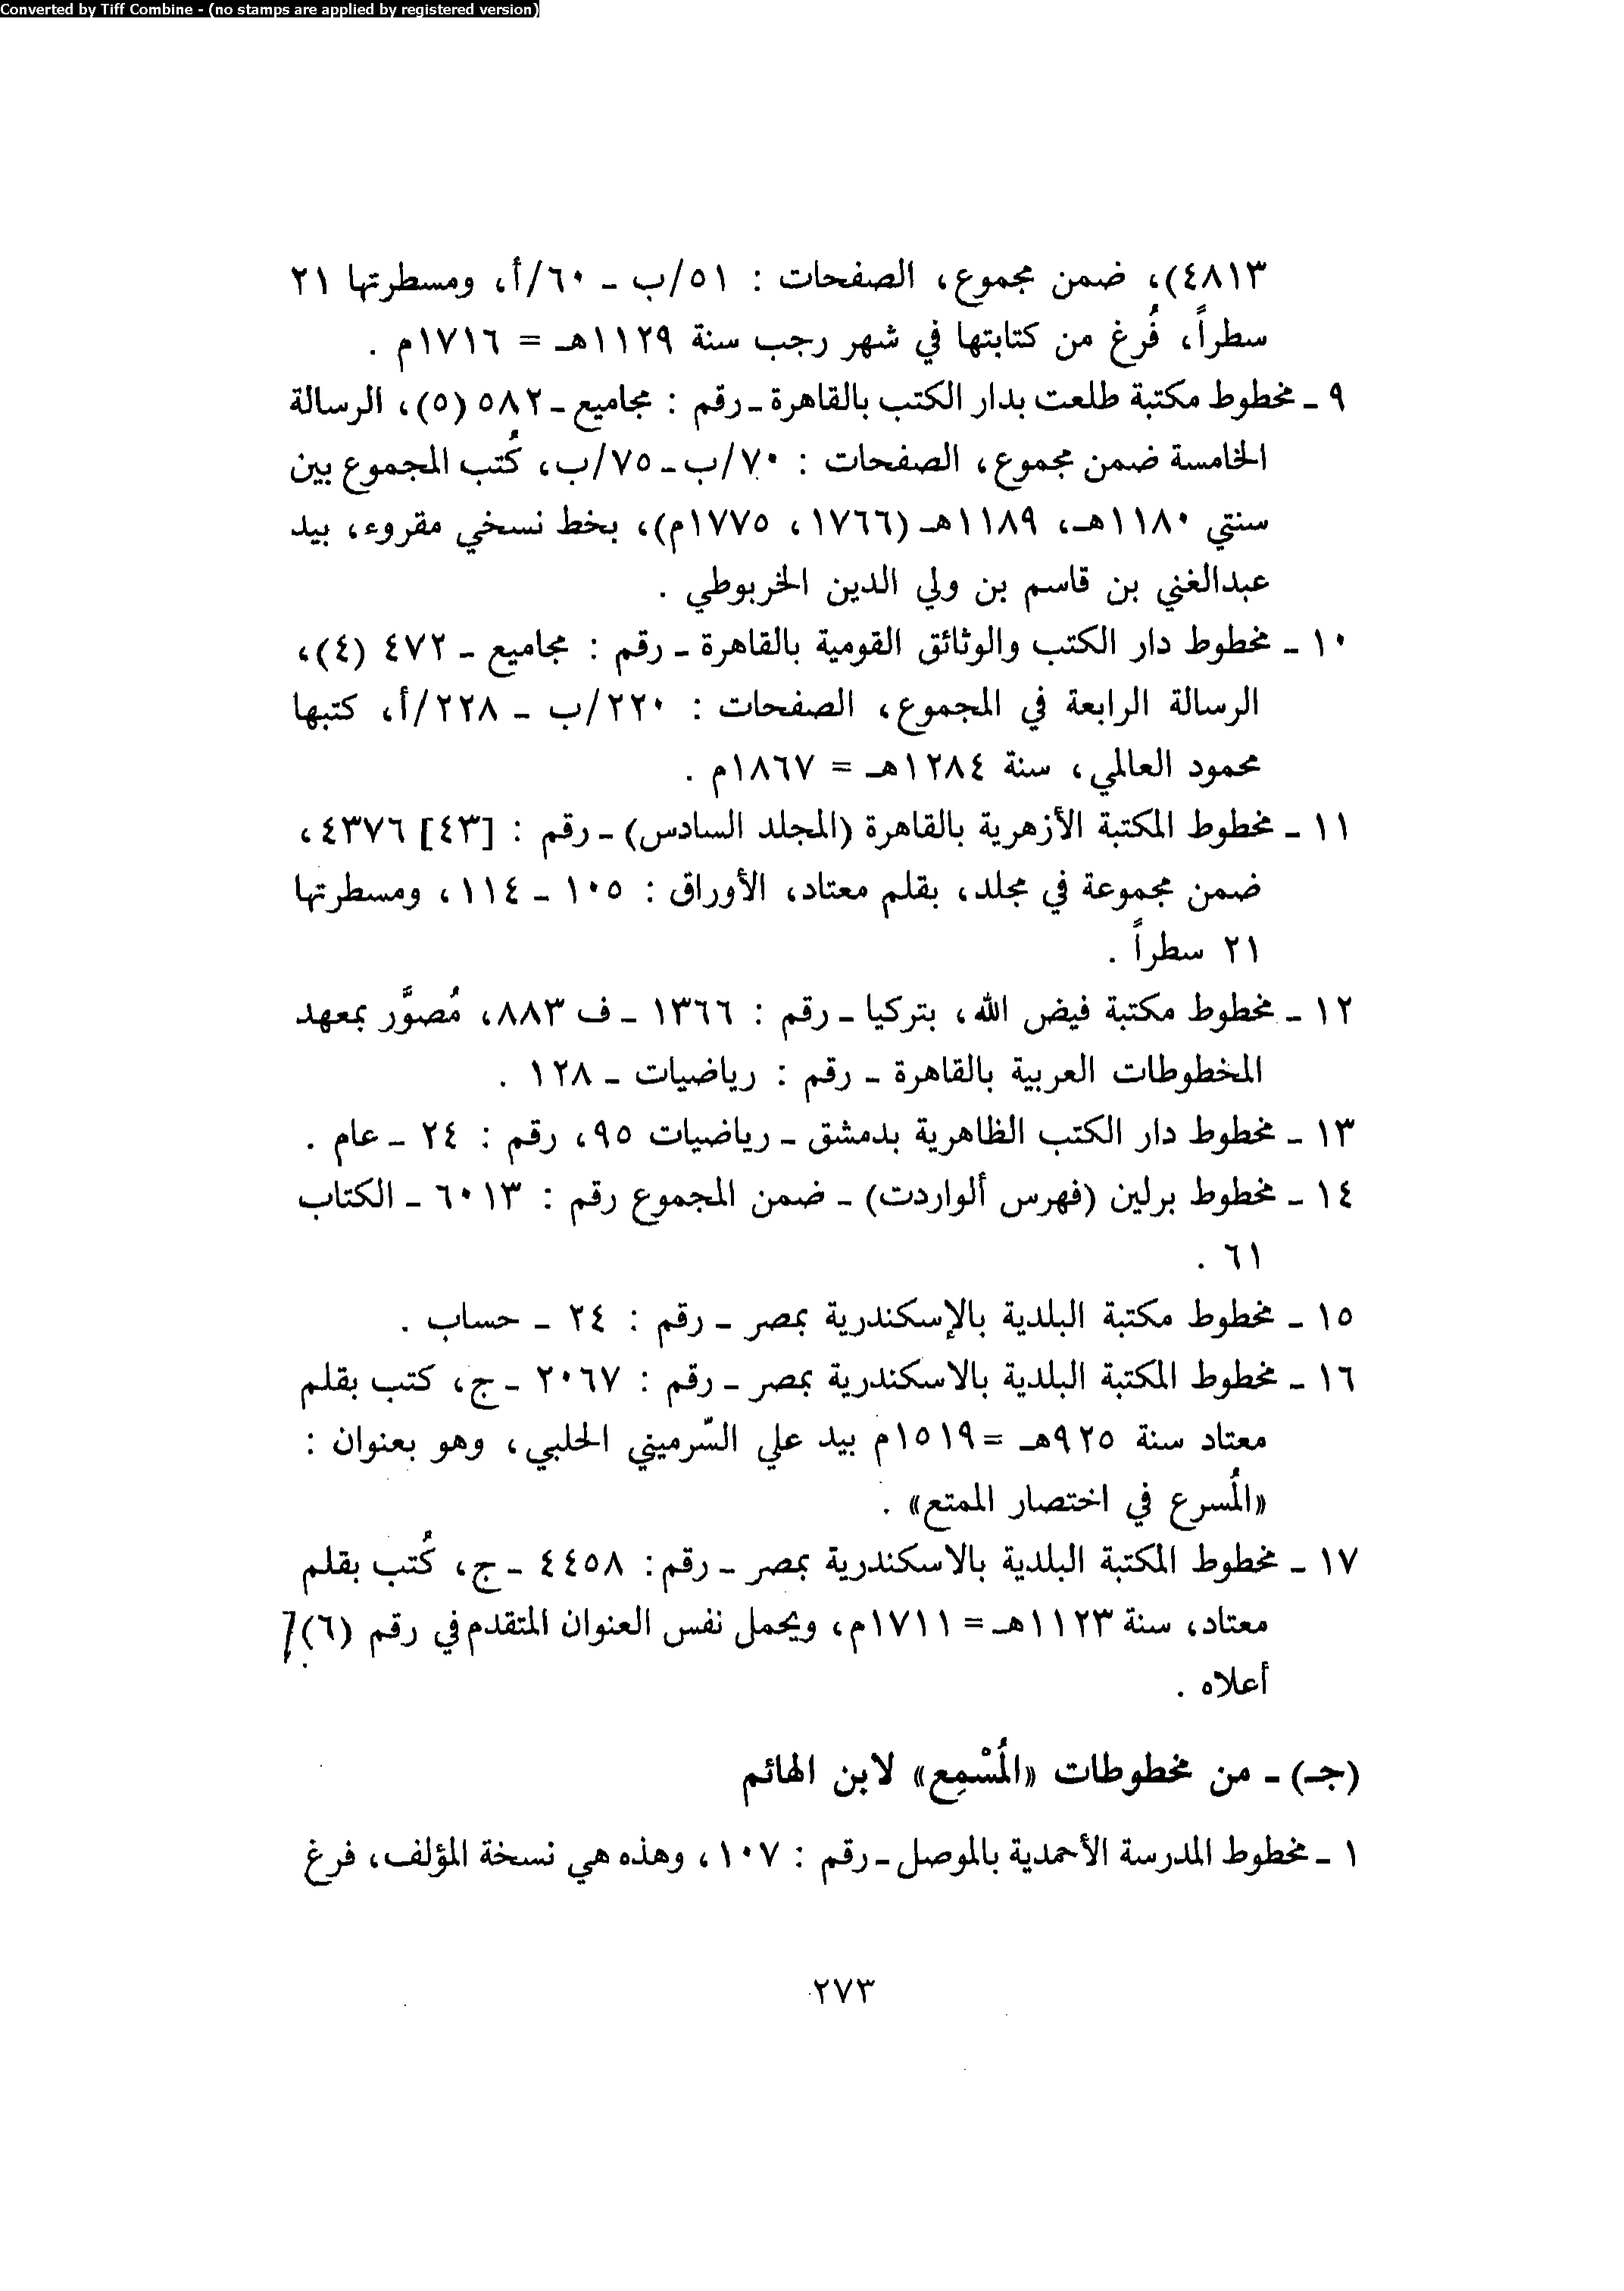 Converted by Tiff Combine - (no stamps are applied by registered version)
٤٨١٣)، ضمن مجموع، الصفحات : ٥١/ب ـ ٦٠/أ، ومسطرتها ٢١
سطراً، فُرغ من كتابتها في شهر رجب سنة ١١٢٩هـ = ١٧١٦م .
٩ ـ مخطوط مكتبة طلعت بدار الكتب بالقاهرة ـ رقم : مجاميع ـ ٥٨٢ (٥)، الرسالة
الخامسة ضمن مجموع، الصفحات : ٧٠/ب ـ ٧٥/ب، كُتب المجموع بين
سنتي ١١٨٠هـ، ١١٨٩هـ (١٧٦٦ ، ١٧٧٥م)، بخط نسخي مقروء، بيد
عبدالغني بن قاسم بن ولي الدين الخربوطي .
١٠ ـ مخطوط دار الكتب والوثائق القومية بالقاهرة ـ رقم : مجاميع ـ ٤٧٢ (٤)،
الرسالة الرابعة في المجموع، الصفحات : ٢٢٠/ب ـ ٢٢٨/أ، كتبها
محمود العالمي، سنة ١٢٨٤هـ = ١٨٦٧م .
١١ ـ مخطوط المكتبة الأزهرية بالقاهرة (المجلد السادس) ـ رقم : [٤٣] ٤٣٧٦،
ضمن مجموعة في مجلد، بقلم معتاد، الأوراق : ١٠٥ ـ ١١٤، ومسطرتها
٢١ سطراً .
١٢ ـ مخطوط مكتبة فيض الله، بتركيا ـ رقم : ١٣٦٦ ـ ف ٨٨٣، مُصوَّر بمعهد
المخطوطات العربية بالقاهرة ـ رقم : رياضيات ـ ١٢٨ .
١٣ ـ مخطوط دار الكتب الظاهرية بدمشق ـ رياضيات ٩٥، رقم : ٢٤ ـ عام .
١٤ ـ مخطوط برلين (فهرس ألواردت) ـ ضمن المجموع رقم : ٦٠١٣ ـ الكتاب
٦١ .
١٥ ـ مخطوط مكتبة البلدية بالإسكندرية بمصر ـ رقم : ٢٤ ـ حساب .
١٦ ـ مخطوط المكتبة البلدية بالاسكندرية بمصر ـ رقم : ٢٠٦٧ ـ ج، كتب بقلم
معتاد سنة ٩٢٥هـ = ١٥١٩م بيد علي السّرميني الحلبي، وهو بعنوان :
«المُسرع في اختصار الممتع» .
١٧ ـ مخطوط المكتبة البلدية بالاسكندرية بمصر ـ رقم : ٤٤٥٨ ـ ج، كُتب بقلم
معتاد، سنة ١١٢٣هـ = ١٧١١م، ويحمل نفس العنوان المتقدم في رقم (٦)
أعلاه .
(جـ) ـ من مخطوطات «المُسْمِع» لابن الهائم
١ ـ مخطوط المدرسة الأحمدية بالموصل ـ رقم : ١٠٧، وهذه هي نسخة المؤلف، فرغ
٢٧٣